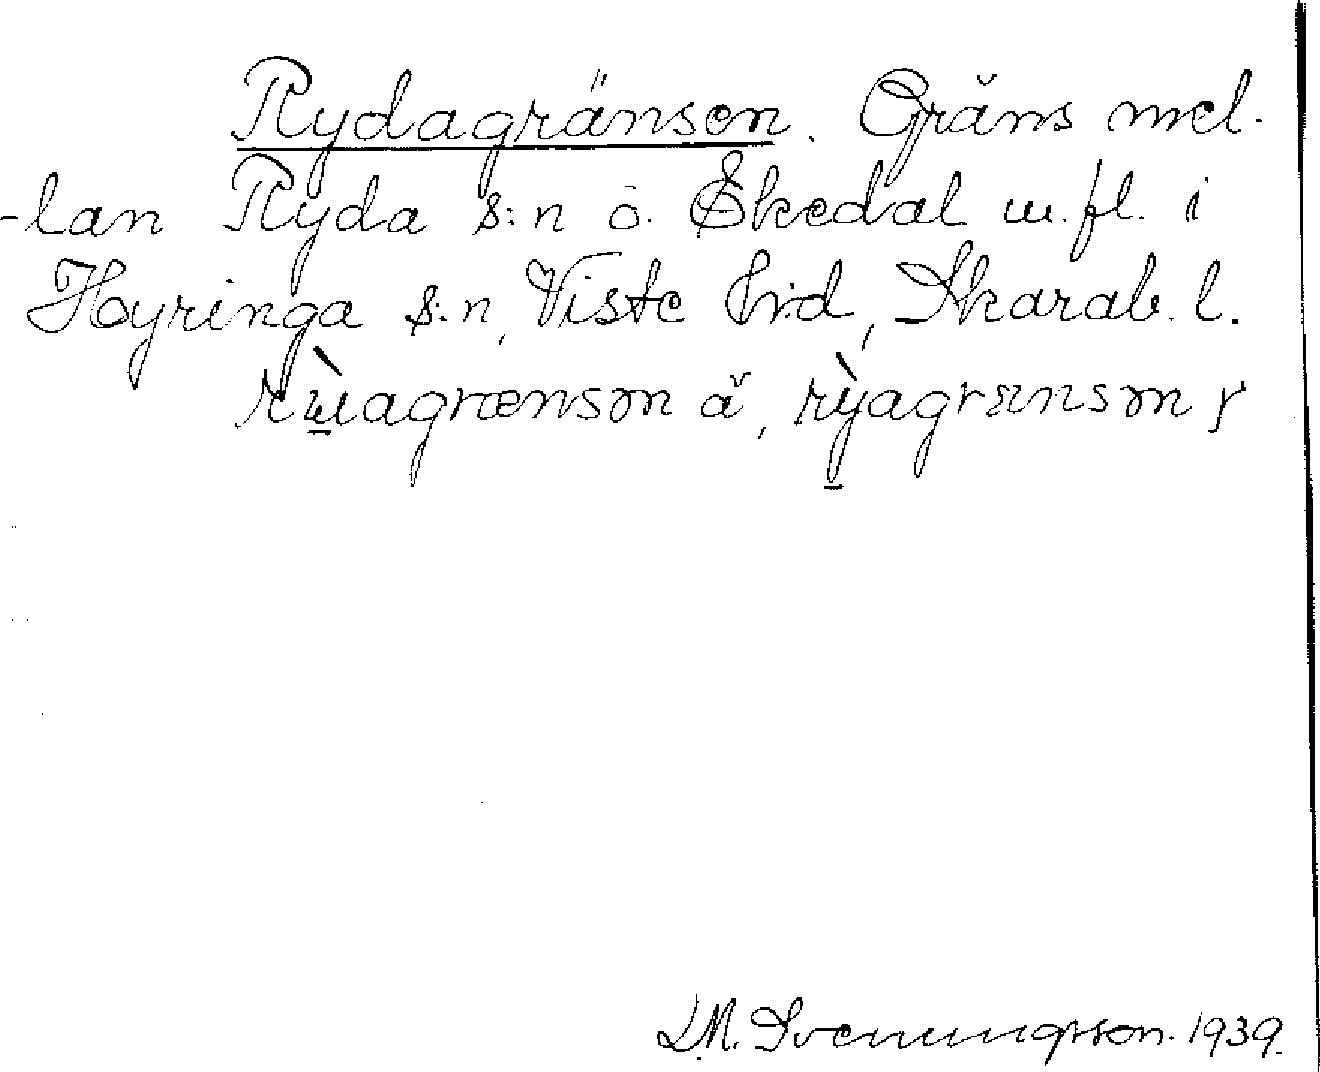 Rydagränsen. Gräns mel-
-lan Ryda s:n o. Skedal m.fl. i
Hyringa s:n, Viste hd, Skarab. l.
rẁagrænsən ǎ, rỳagrænsən y
D.M. Svenungsson. 1939.